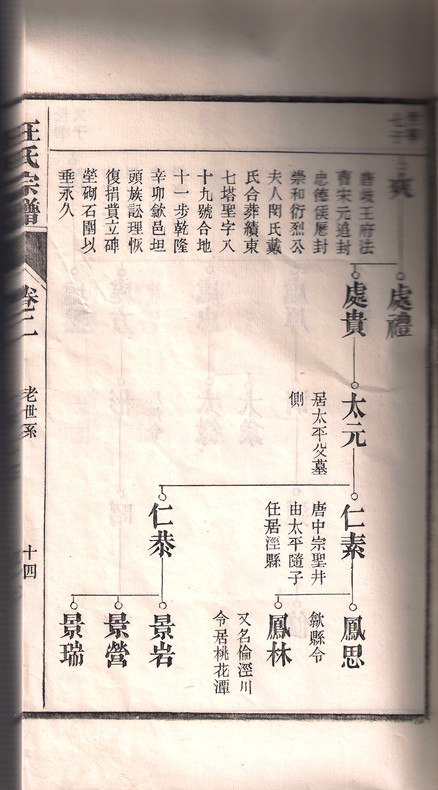 爽
唐岐王府法
曹宋元追封
忠德侯屢封
崇和衍烈公
夫人閔氏戴
氏合葬績東
七塔聖字八
十九號合地
十一步乾隆
辛卯歙邑坦
頭族訟理恢
復捐貲立碑
塋砌石圍以
垂永久
處禮
處貴
太元
居太平父墓
側
仁素
唐中宗聖井
由太平隨子
任居涇縣
仁恭
鳳思
歙縣令
鳳林
又名倫涇川
令居桃花潭
景岩
景營
景瑞
汪氏宗譜
卷二
老世系
十四